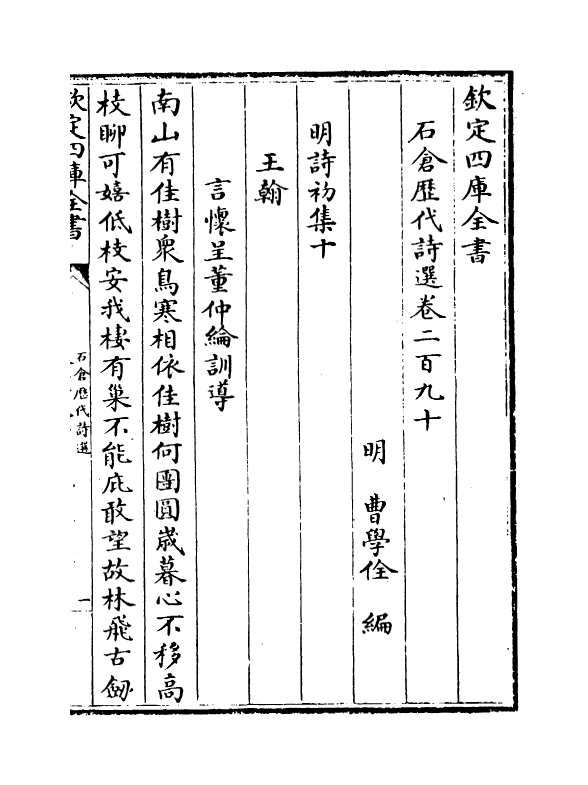 欽定四庫全書
石倉歴代詩選卷二百九十
明 曹學佺 編
明詩初集十
王翰
言懷呈董仲綸訓導
南山有佳樹衆鳥寒相依佳樹何團圓歲暮心不移高
枝聊可嬉低枝安我棲有巢不能庇敢望故林飛古劒
欽定四庫全書
石倉歷代詩選
一